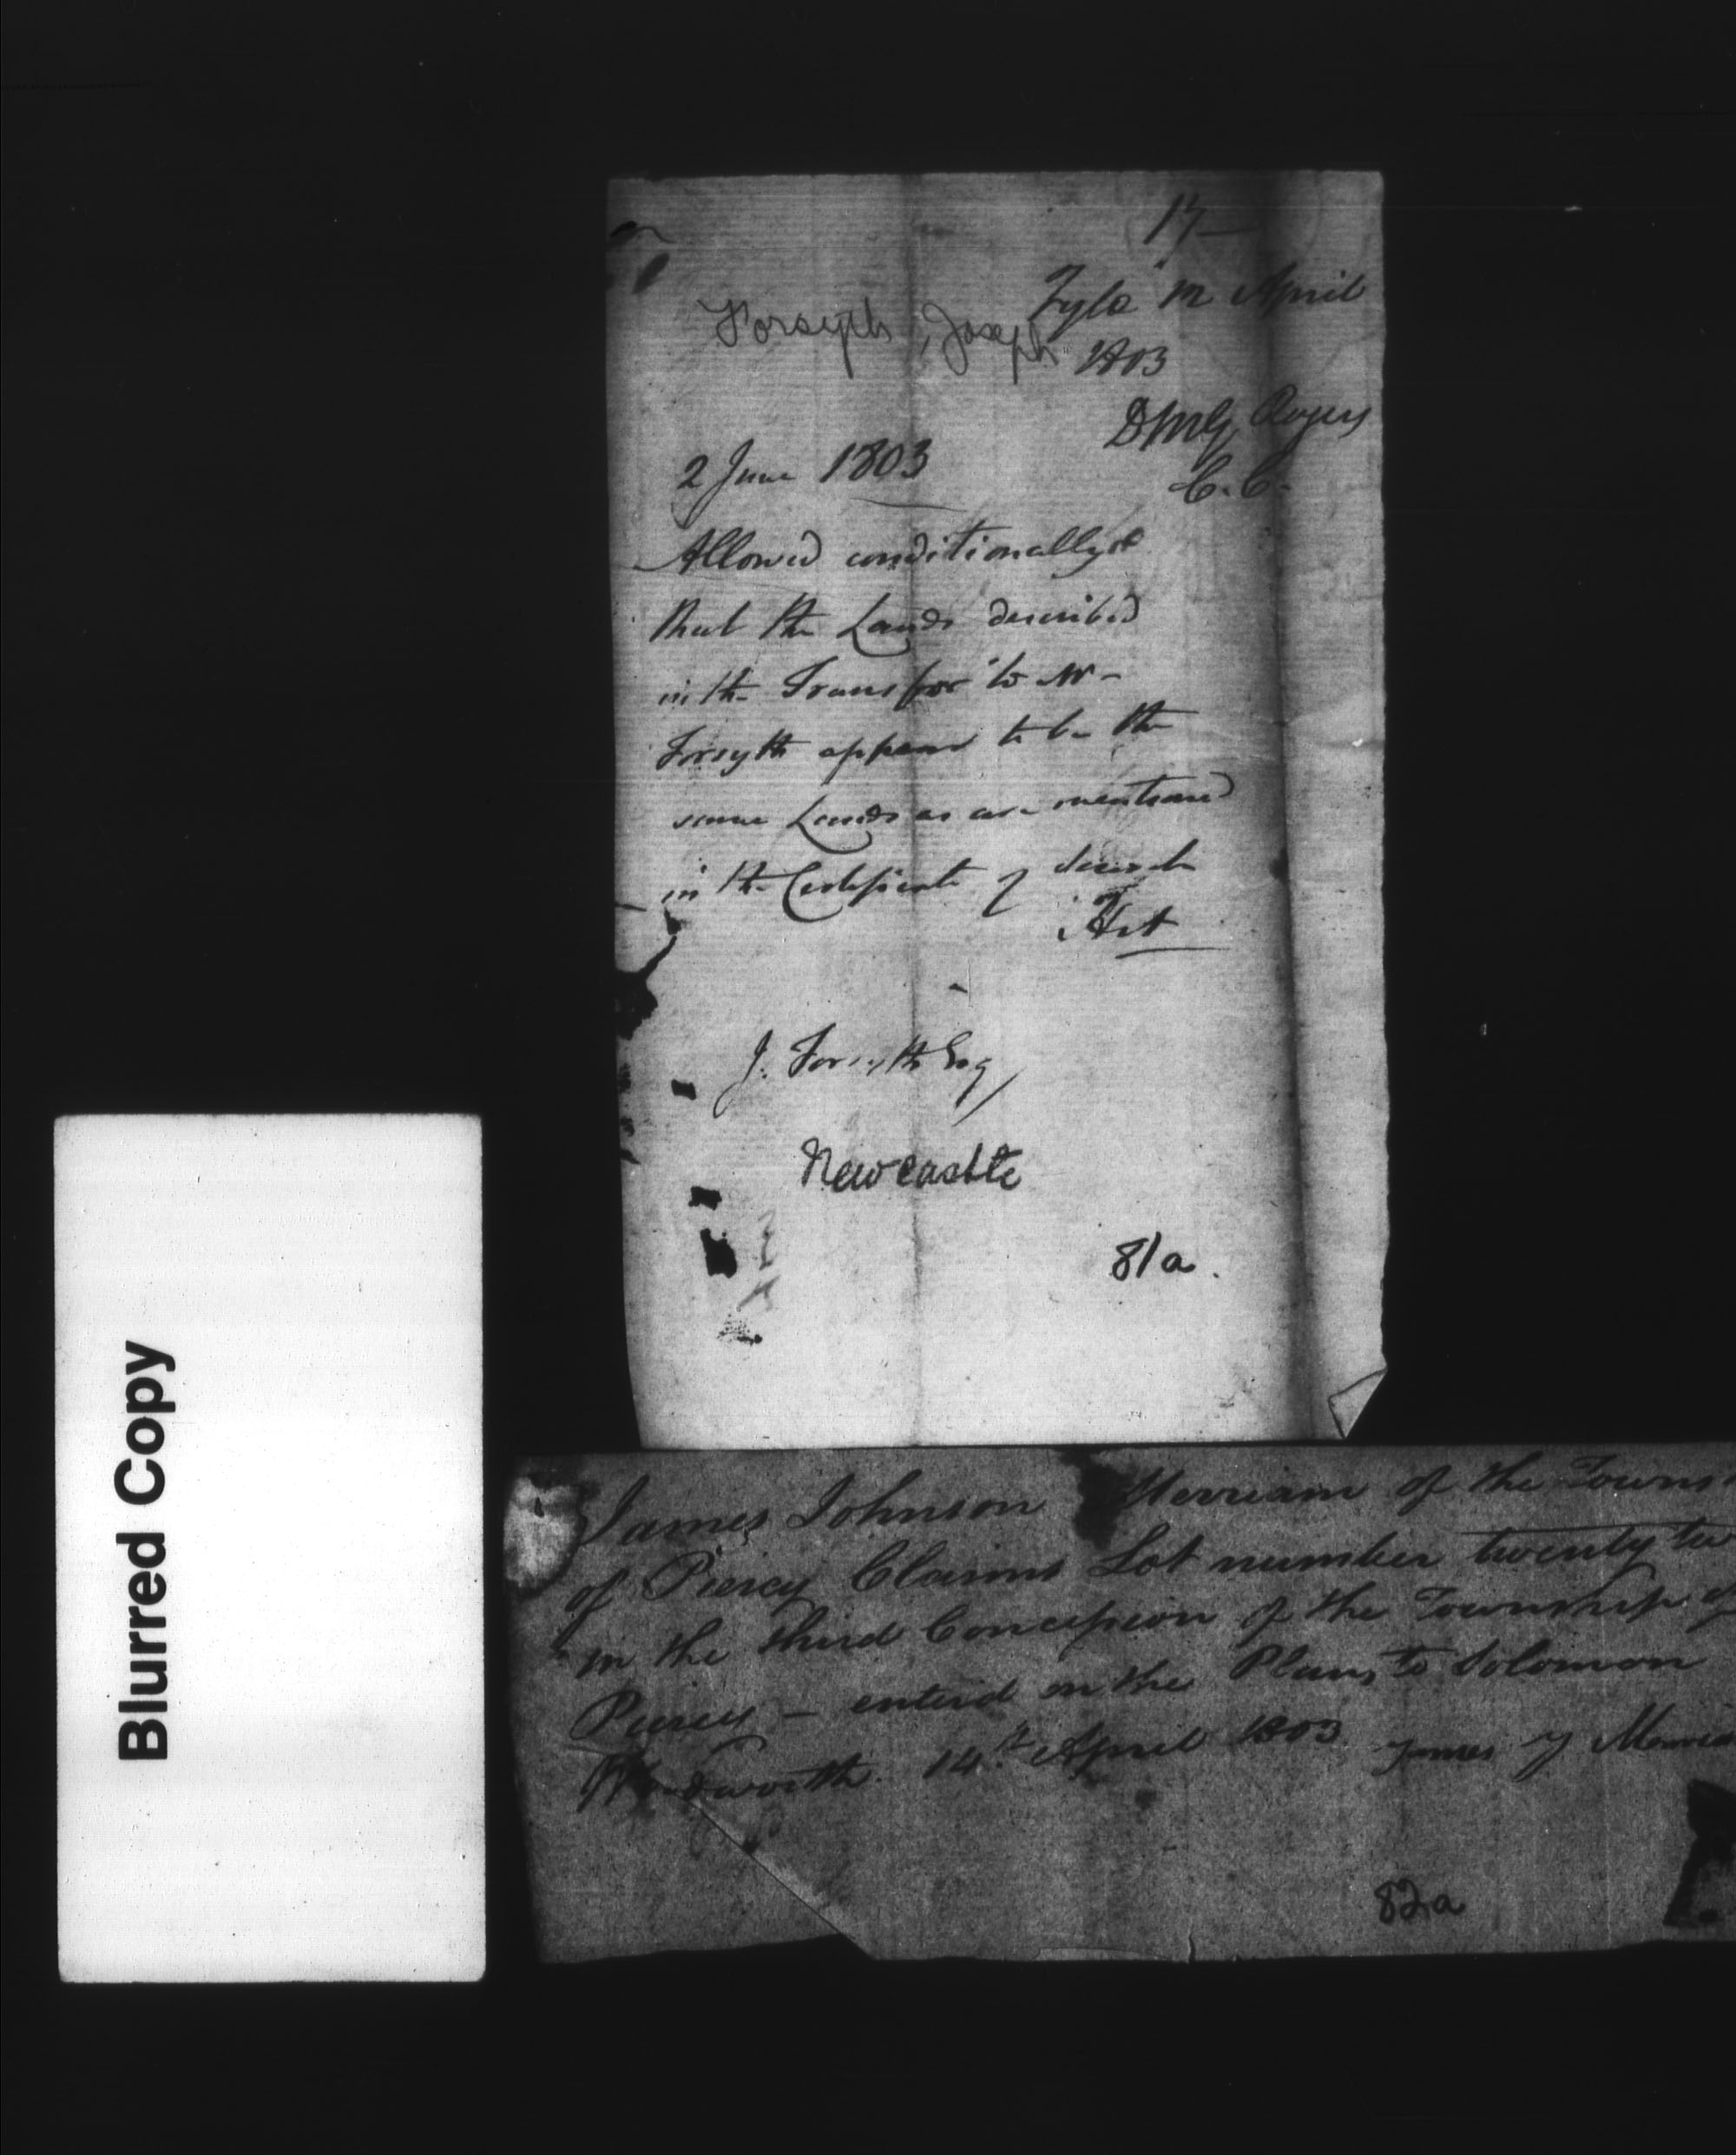 17 —
Fyld in April
Forsyth, Joseph
1803
DMG Rogers
C. C.
2 June 1803
Allowed conditionally
that the Lands described
in the Transfer to Mr -
Forsyth appear to be the
same Lands as are mentioned
in the Certificate of
J. Forsyth Esq
Newcastle
81a.
Blurred Copy
James Johnson Merriam of the Towns
of Piercy Claims Lot number twenty
in the third Concession of the Township of
Piercy — enterd on the Plan, to Solomon
14th April 1803 James J
82a